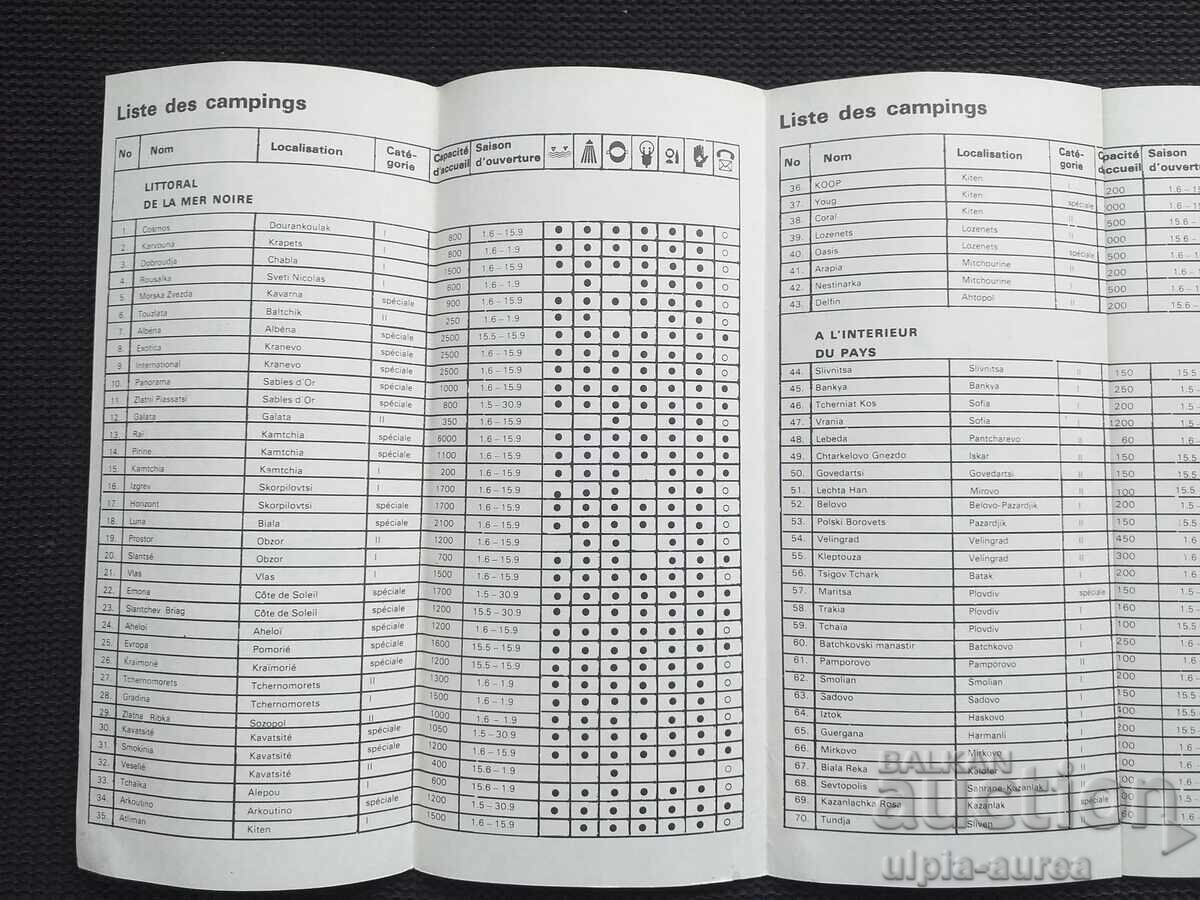 Liste des campings
No Nom Localisation Caté-gorie Capacité d'accueil Saison d'ouverture
LITTORAL
DE LA MER NOIRE
1. Cosmos Dourankoulak I 800 1.6 – 15.9
2. Karvouna Krapets I 800 1.6 – 1.9
3. Dobroudja Chabla I 1500 1.6 – 15.9
4. Rousalka Sveti Nicolas I 600 1.6 – 1.9
5. Morska Zvezda Kavarna spéciale 900 1.6 – 15.9
6. Touzlata Baltchik II 250 1.6 – 1.9
7. Albéna Albéna spéciale 2500 15.5 – 15.9
8. Exotica Kranevo spéciale 2500 1.6 – 15.9
9. International Kranevo spéciale 2500 1.6 – 15.9
10. Panorama Sables d'Or spéciale 1000 1.6 – 15.9
11. Zlatni Piassatsi Sables d'Or spéciale 800 1.5 – 30.9
12. Galata Galata II 350 1.6 – 15.9
13. Raï Kamtchia spéciale 6000 1.6 – 15.9
14. Pirine Kamtchia spéciale 1100 1.6 – 15.9
15. Kamtchia Kamtchia I 200 1.6 – 15.9
16. Izgrev Skorpilovtsi I 1700 1.6 – 15.9
17. Horizont Skorpilovtsi spéciale 1700 1.6 – 15.9
18. Luna Biala spéciale 2100 1.6 – 15.9
19. Prostor Obzor II 1200 1.6 – 15.9
20. Slantsé Obzor I 700 1.6 – 15.9
21. Vlas Vlas I 1500 1.6 – 15.9
22. Emona Côte de Soleil spéciale 1700 1.5 – 30.9
23. Slantchev Briag Côte de Soleil spéciale 1200 15.5 – 30.9
24. Aheloï Aheloï spéciale 1200 1.6 – 15.9
25. Evropa Pomorié spéciale 1600 15.5 – 15.9
26. Kraïmorié Kraïmorié spéciale 1200 15.5 – 15.9
27. Tchernomorets Tchernomorets II 1300 1.6 – 1.9
28. Gradina Tchernomorets I 1500 1.6 – 1.9
29. Zlatna Ribka Sozopol II 1000 1.6 – 1.9
30. Kavatsité Kavatsité spéciale 1050 1.5 – 30.9
31. Smokinia Kavatsité spéciale 1200 1.6 – 15.9
32. Vesselié Kavatsité II 400 15.6 – 1.9
33. Tchaïka Alepou I 600 1.6 – 15.9
34. Arkoutino Arkoutino spéciale 1200 1.5 – 30.9
35. Atliman Kiten I 1500 1.6 – 15.9
Liste des campings
No Nom Localisation Caté-gorie Capacité d'accueil Saison d'ouvertu
36. KOOP Kiten I 200 1.6 – 15
37. Youg Kiten spéciale 000 1.6 – 15
38. Coral Kiten II 500 15.6 –
39. Lozenets Lozenets II 000 15.6 –
40. Oasis Lozenets spéciale 500 1.6 –
41. Arapia Mitchourine II 200 1.6 –
42. Nestinarka Mitchourine I 500 1.6 –
43. Delfin Ahtopol II 200 15.6 –
A L'INTERIEUR
DU PAYS
44. Slivnitsa Slivnitsa II 150 15.5
45. Bankya Bankya I 250 1.5 –
46. Tcherniat Kos Sofia I 200 1.5 –
47. Vrania Sofia I 1200 1.5 –
48. Lebeda Pantcharevo II 60 1.6 –
49. Chtarkelovo Gnezdo Iskar II 150 15.5
50. Govedartsi Govedartsi II 150 15.5
51. Lechta Han Mirovo II 100 15.5
52. Belovo Belovo-Pazardjik I 200 1.5 –
53. Polski Borovets Pazardjik II 150 15.5
54. Velingrad Velingrad II 450 1.6
55. Kleptouza Velingrad II 300 1.6
56. Tsigov Tchark Batak I 200 1.6
57. Maritsa Plovdiv spéciale 150 1.5 –
58. Trakia Plovdiv I 160 1.5 –
59. Tchaïa Plovdiv I 100 15.5
60. Batchkovski manastir Batchkovo I 250 1.6
61. Pamporovo Pamporovo II 100 1.6
62. Smolian Smolian I 200 1.6 –
63. Sadovo Sadovo I 150 15.5
64. Iztok Haskovo I 15.5
65. Guergana Harmanli I 15.5
66. Mirkovo Mirkovo I 1.6 –
67. Biala Reka Kalofer II
68. Sevtopolis
69. Kazanlachka Rosa Kazanlak spéciale
70. Tundja Sliven
BALKAN
auction
ulpia-aurea